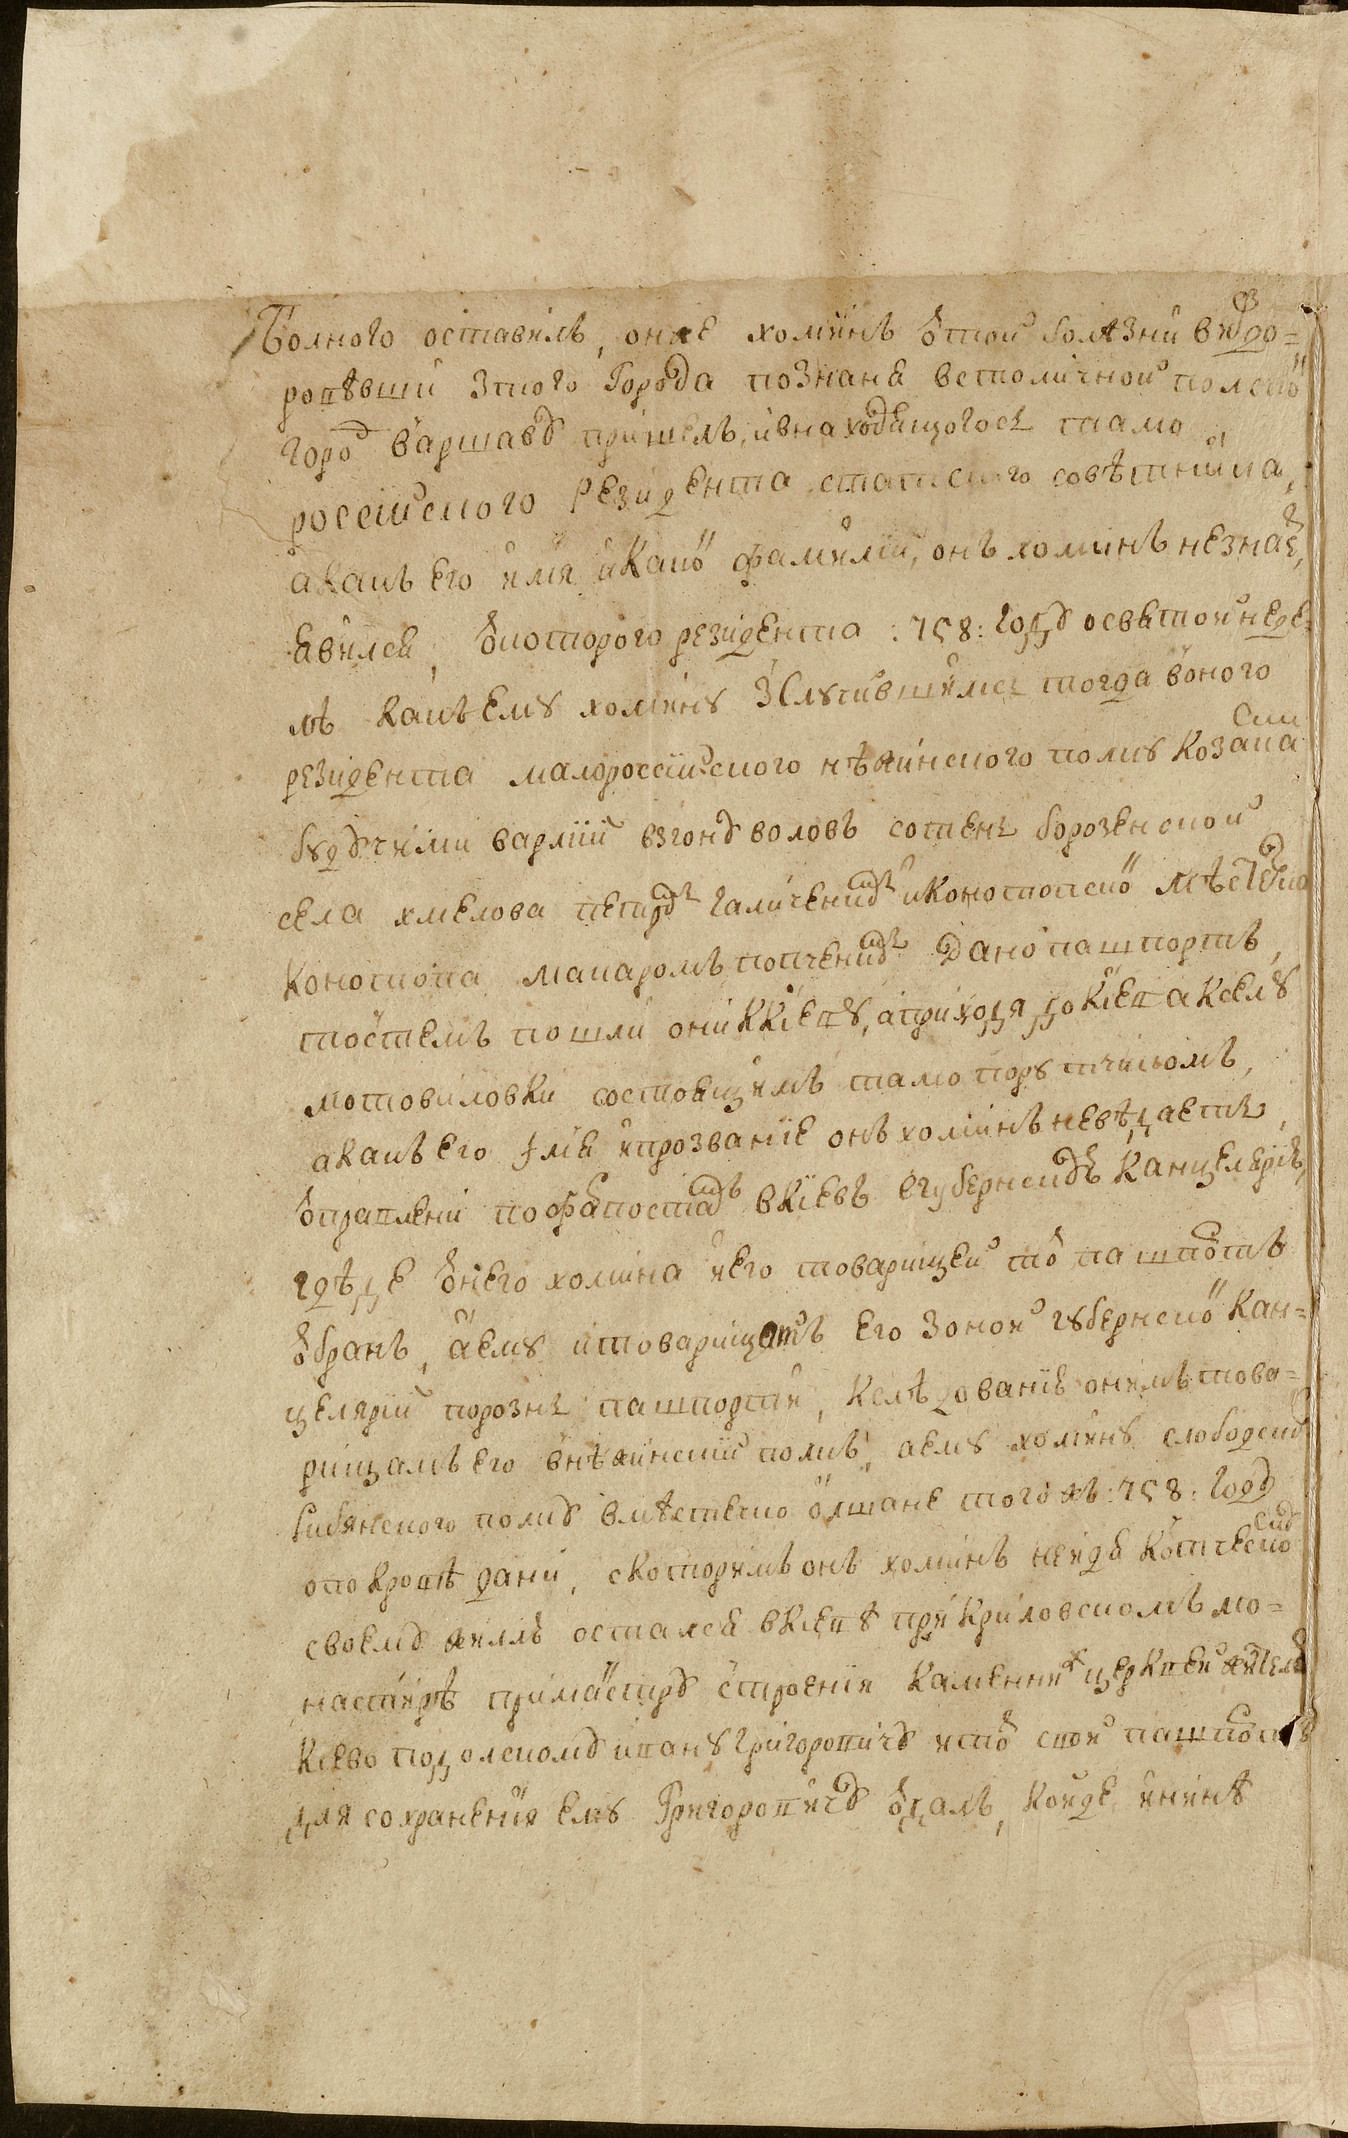 Болного оставилъ, онже хоминъ ѿ тои болѣзни виздо=
ровѣвши з того Города Познаня в столичной полской
горо͏д Варшаву пришелъ, и в находящогося тамо
россійского Резидента статского совѣтника,
а какъ его имя и какой фамиліи, онъ хоминъ не знает,
явился, ѿ которого резидента :758: году о святой неде
лѣ какъ ему хомину з случившимися тогда в оного
резидента малороссійского нѣжинского полку козаками
будучими в арміи в згону воловъ сотень борозенской
села хмелова петром галиченком и конотопской мѣстечка
конотопа макаромъ попченком дано пашпортъ,
с тѣмъ пошли они к Кіеву, а приходя до Кіева к селу
мотовиловки состоящимъ тамо поручикомъ,
а какъ его имя и прозваніе онъ хоминъ не вѣдаетъ,
ѿправлени по форпостам в Кіевъ в губернскую канцелярію,
гдѣ де ѿ него хомина и его товарищей тот пашпортъ
ѿбранъ, а ему и товарищамъ его з оной губернской кан=
целяріи порознь пашпорти, к слѣдованію онимъ това=
рищамъ его в нѣжинскій полкъ, а ему хомину слободского
полку в мѣстечко олшане того жъ :758: году
о покровѣ дани, с которимъ онъ хоминъ не идя к отческому
своему жиллю остался в Кіевѣ при Криловском мо=
настирѣ при майстру строенія каменних церквей жителю
Кіево подолскому ивану Григоровичу и тот свой пашпортъ
для сохраненія ему Григоровичу ѿдалъ, кой де и нинѣ